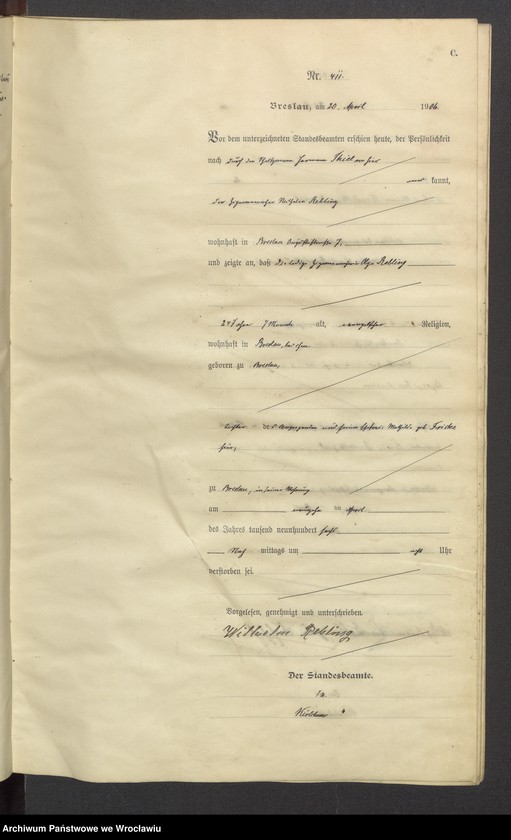 C.
Nr. 411.
Breslau, am 20. April 1906.
Vor dem unterzeichneten Standesbeamten erschien heute, der Persönlichkeit
nach durch den Schutzmann Hermann Thiel von hier
kannt,
der Zigarrenmacher Wilhelm Rebling
wohnhaft in Breslau 7,
und zeigte an, daß die ledige Olga Rebling
24 Jahre 7 Monate alt, evangelischer Religion,
wohnhaft in Breslau, bei ihm
geboren zu Breslau,
Tochter des Anzeigenden und seiner Ehefrau Mathilde geb. Fricke
hier,
zu Breslau, in seiner Wohnung
am neunzehn ten April
des Jahres tausend neunhundert sechs
Nach mittags um acht Uhr
verstorben sei.
Vorgelesen, genehmigt und unterschrieben.
Wilhelm Rebling
Der Standesbeamte.
Archiwum Państwowe we Wrocławiu